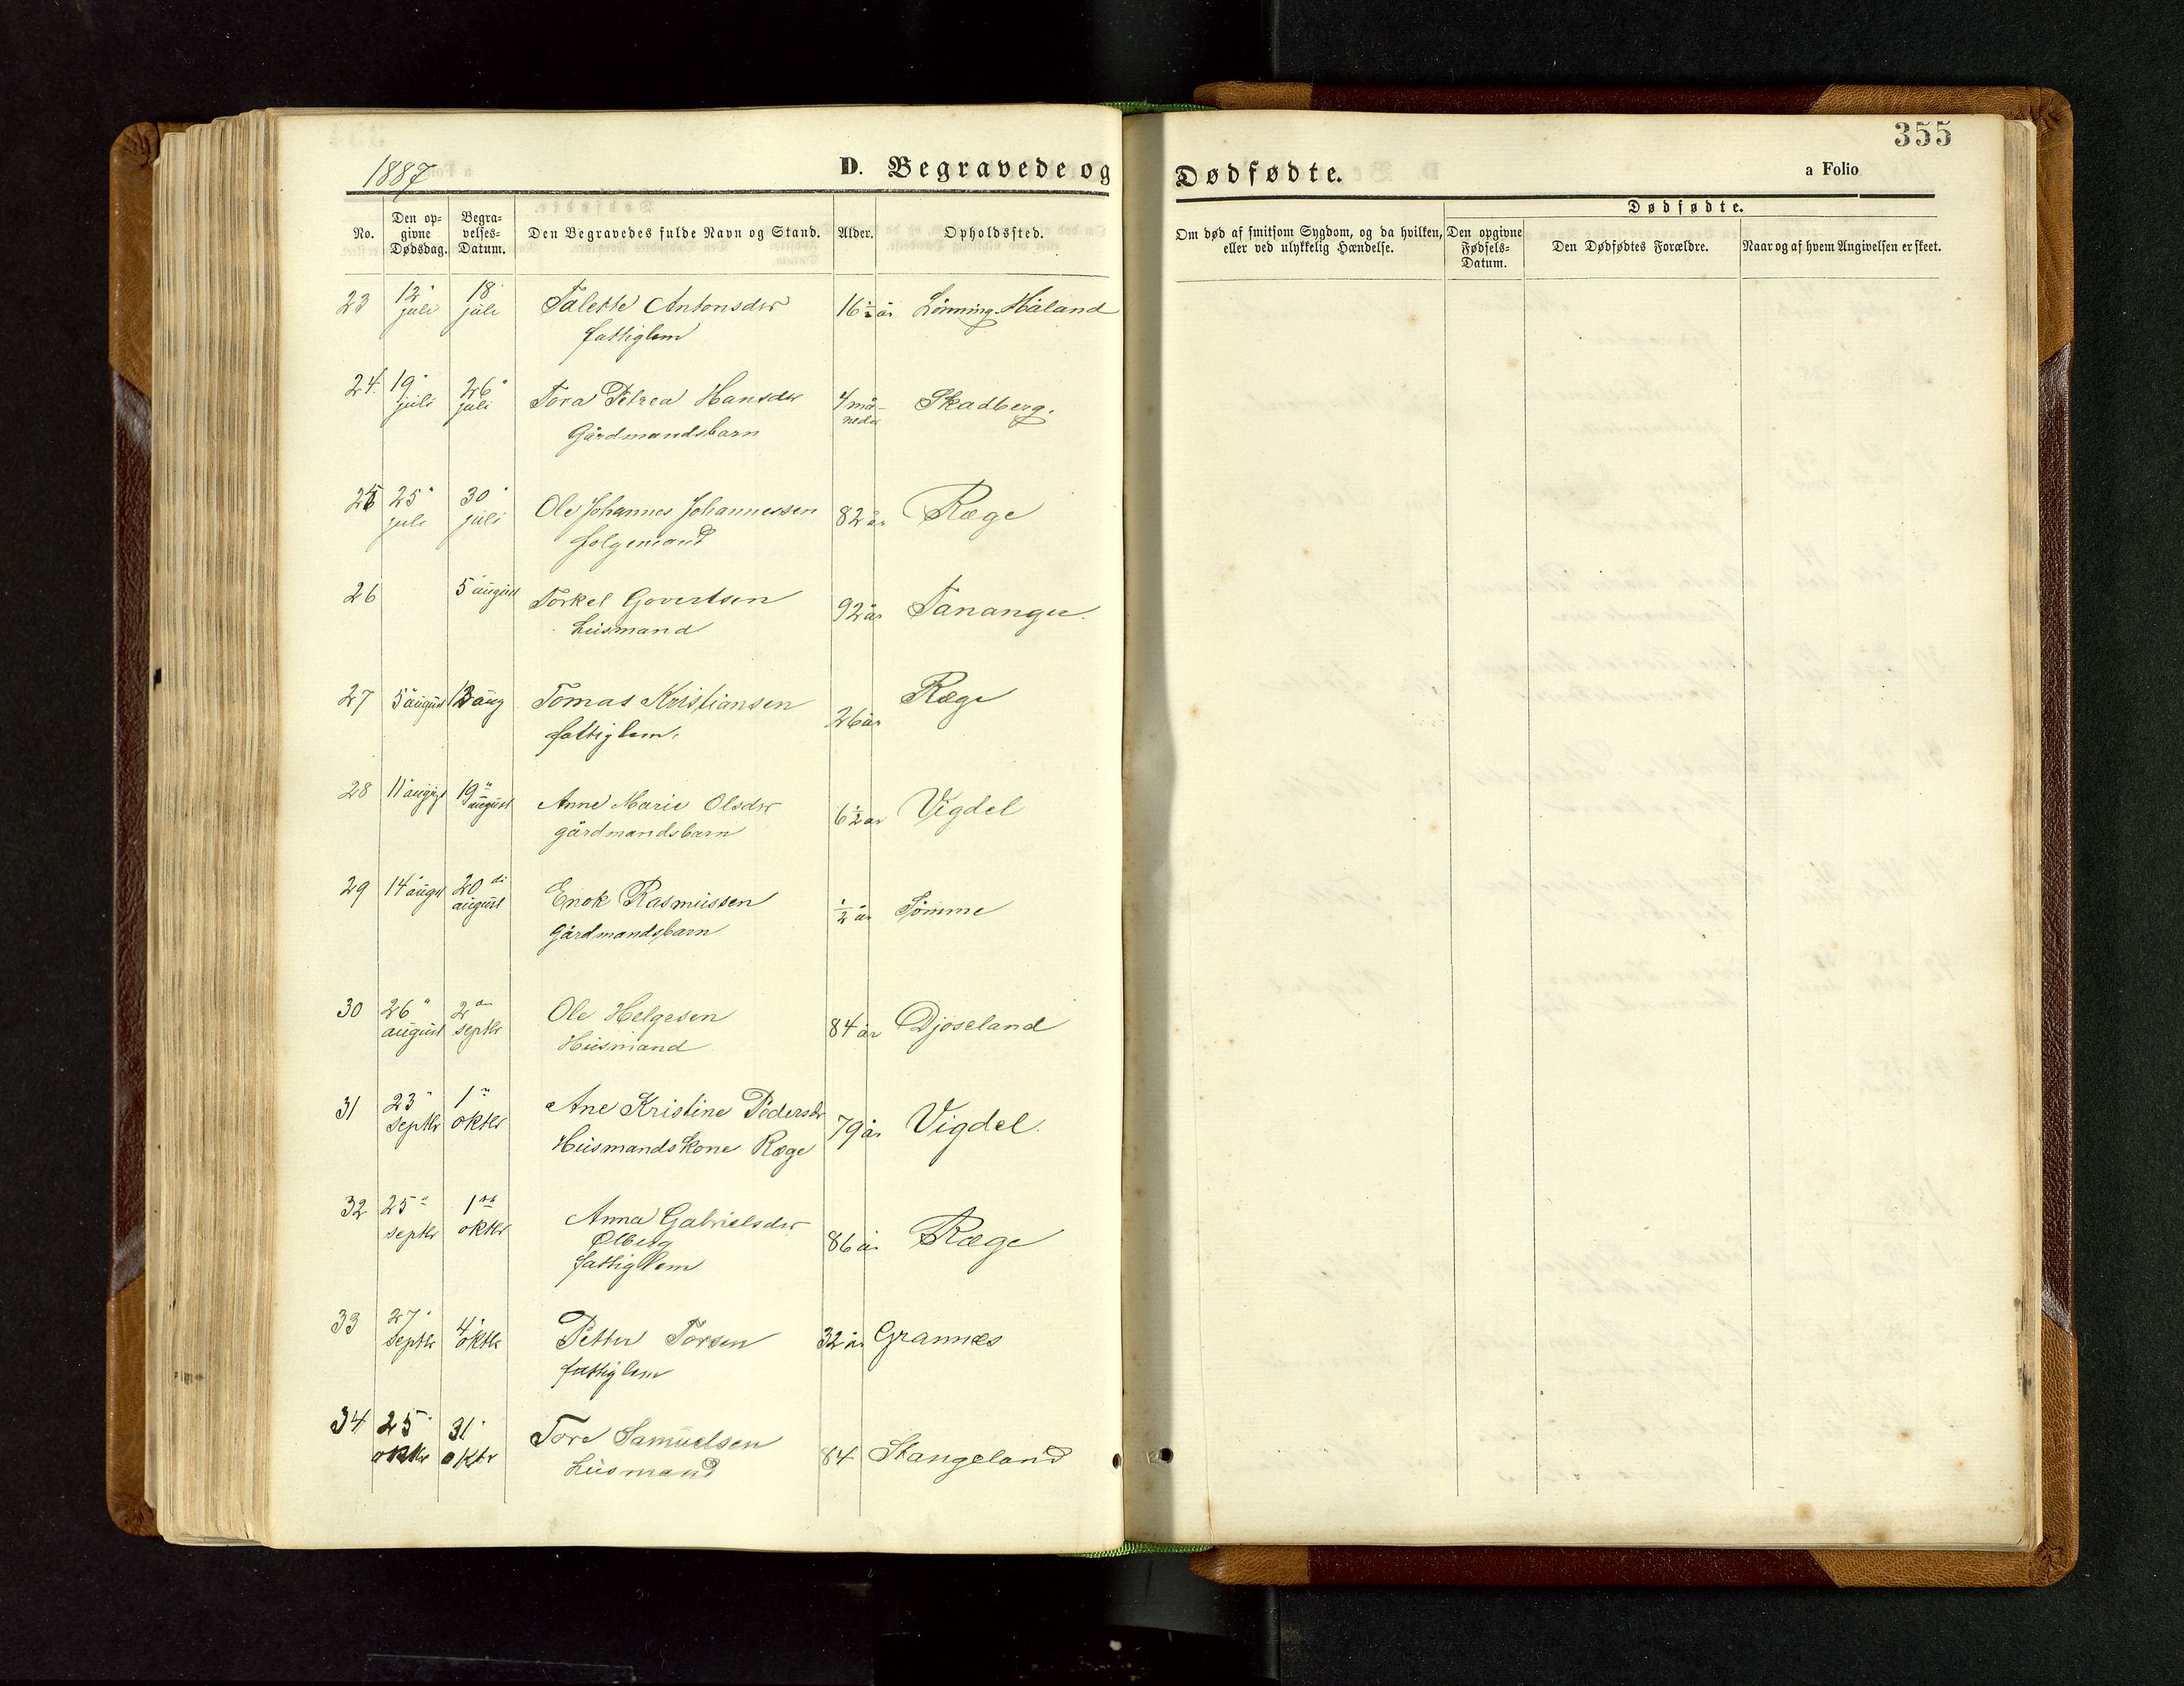 355
1887
D. Begravede og Dødfødte.
a Folio
No.
Den op-
givne
Dødsdag.
Begra-
velses-
Datum.
Den Begravedes fulde Navn og Stand.
Alder.
Opholdssted.
Om død af smitsom Sygdom, og da hvilken,
eller ved ulykkelig Hændelse.
Dødfødte.
Den opgivne
Fødsels-
Datum.
Den Dødfødtes Forældre.
Naar og af hvem Angivelsen er skeet.
23 12 juli 18 juli Talette Antonsdtr 16½ år Lönning Håland
fattiglem
24. 19 juli 26 juli Tora Petrea Hansdtr 4 må-neder Skadberg.
Gårdmandsbarn
25 25 juli 30 juli Ole Johannes Johannessen 82 år Ræge
folgemand
26 5 august Torkel Govertsen 92 år Tananger.
husmand
27 5 august 13 aug Tomas Kristiansen 26 år Ræge
fattiglem.
28 11 august 19 august Anne Marie Olsdtr 6½ år Vigdel
gårdmandsbarn
29 14 august 20 august Enok Rasmussen ½ år Sömme
Gårdmandsbarn
30 26 august 2 septbr Ole Helgesen 84 år Djoseland
Husmand
31 23 septbr 1 oktbr Ane Kristine Pedersdtr 79 år Vigdel.
Husmandskone Ræge
32 25 septbr 1 oktbr Anna Gabrielsdtr 86 år Ræge
Ølberg
fattiglem
33 27 septbr 4 oktbr Petter Torsen 32 år Grannes
fattiglem
34 25 oktbr 31 oktbr Tore Samuelsen 84 Stangeland
husmand